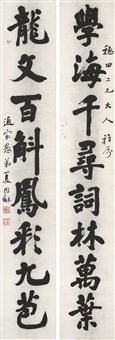 學海千尋詞林萬葉
穗田二兄大人雅屬
龍文百斛鳳彩九苞
通家愚弟夏同龢